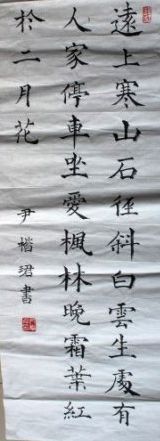 遠上寒山石徑斜白雲生處有
人家停車坐愛楓林晚霜葉紅
於二月花
尹楷珺書